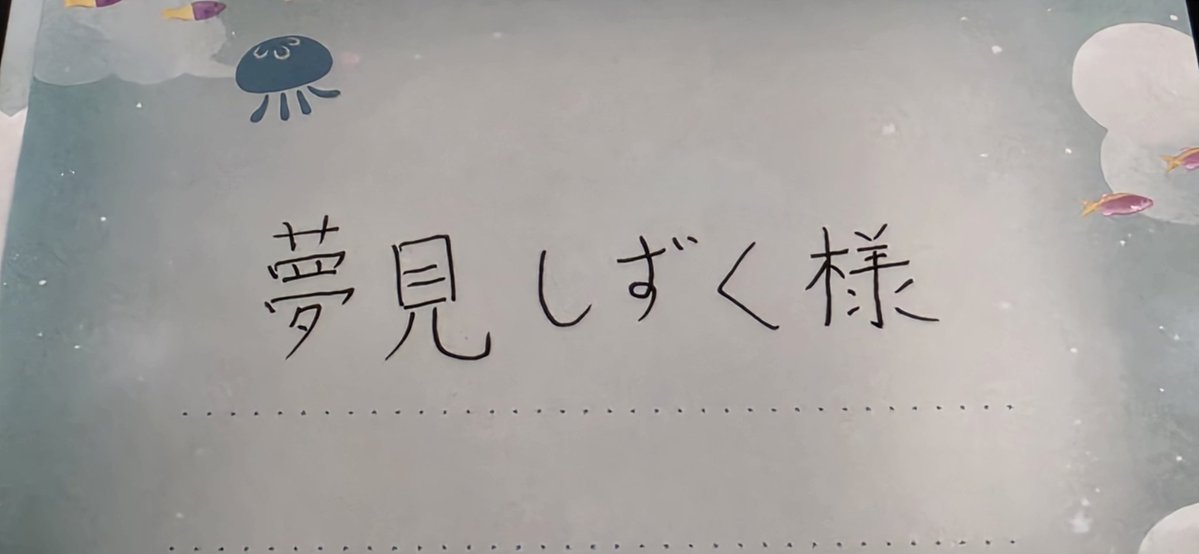 夢見しずく様